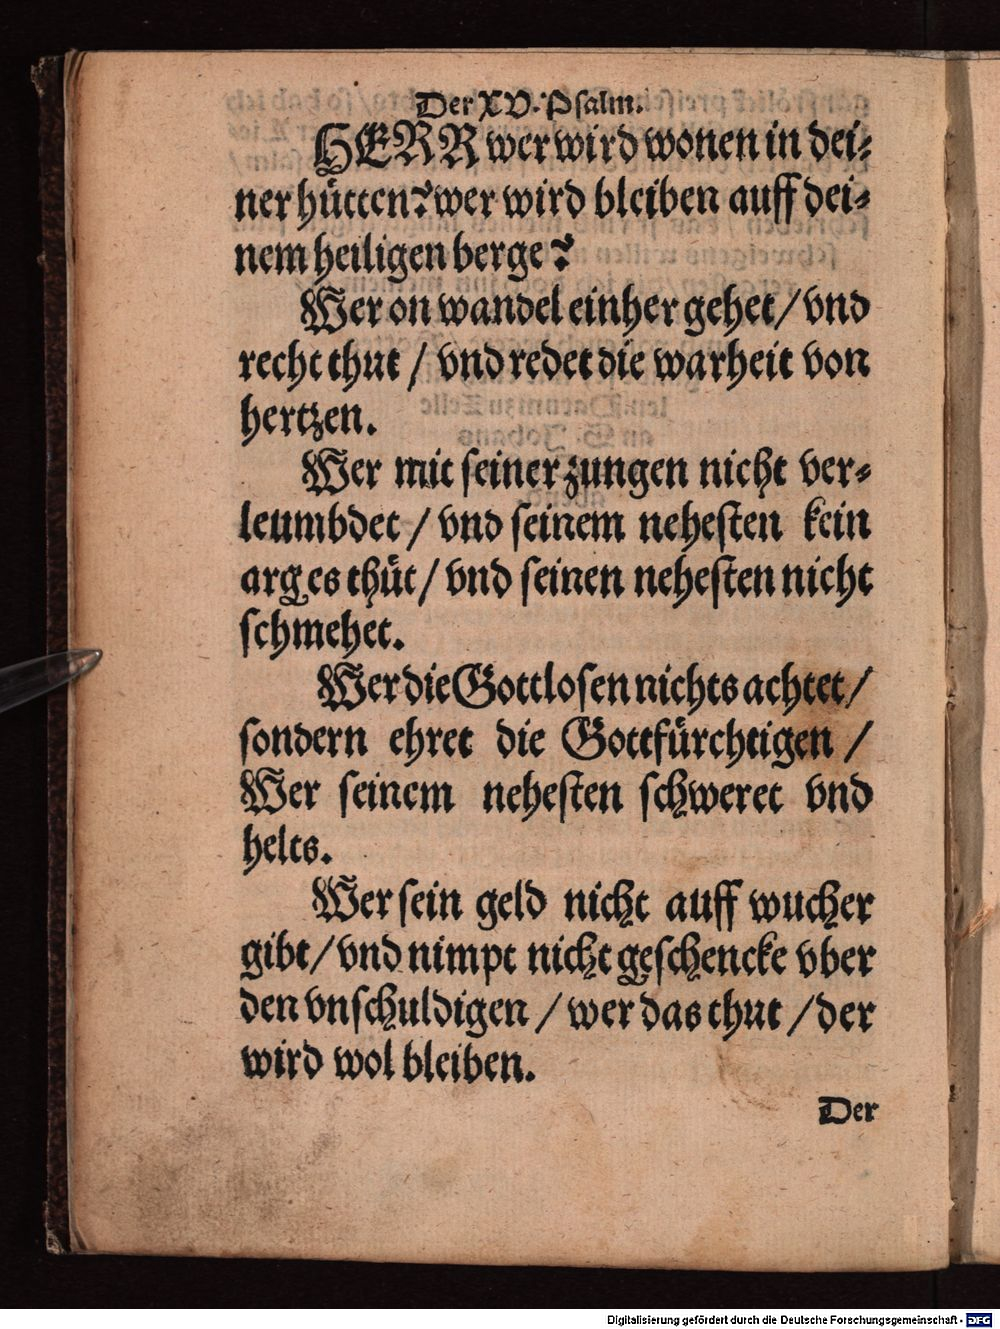 Der XV. Psalm.
HERR wer wird wonen in dei⸗
ner hütten? wer wird bleiben auff dei⸗
nem heiligen berge?
Wer on wandel einher gehet / vnd
recht thut / vnd redet die warheit von
hertzen.
Wer mit seiner zungen nicht ver⸗
leumbdet / vnd seinem nehesten kein
arges thüt / vnd seinen nehesten nicht
schmehet.
Wer die Gottlosen nichts achtet /
sondern ehret die Gottfürchtigen /
Wer seinem nehesten schweret vnd
helts.
Wer sein geld nicht auff wucher
gibt / vnd nimpt nicht geschencke vber
den vnschuldigen / wer das thut / der
wird wol bleiben.
Der
Digitalisierung gefördert durch die Deutsche Forschungsgemeinschaft - DFG